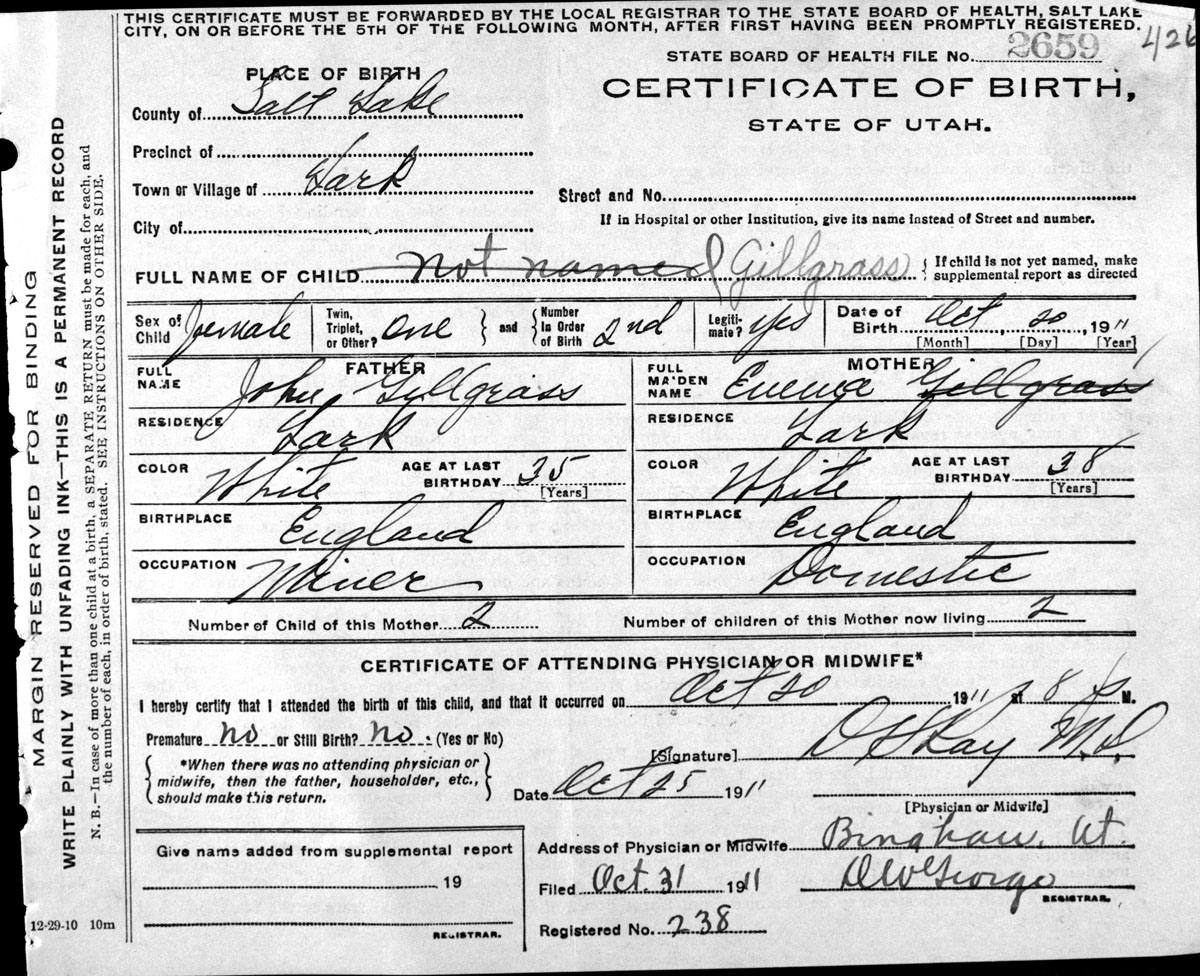 THIS CERTIFICATE MUST BE FORWARDED BY THE LOCAL REGISTRAR TO THE STATE BOARD OF HEALTH, SALT LAKE
CITY, ON OR BEFORE THE 5TH OF THE FOLLOWING MONTH, AFTER FIRST HAVING BEEN PROMPTLY REGISTERED.
426
STATE BOARD OF HEALTH FILE No. 2659
CERTIFICATE OF BIRTH,
STATE OF UTAH.
PLACE OF BIRTH
County of Salt Lake
Precinct of
Town or Village of Lark
Street and No.
City of
If in Hospital or other Institution, give its name instead of Street and number.
FULL NAME OF CHILD not named Gillgrass { If child is not yet named, make
supplemental report as directed
Sex of Child female Twin, Triplet, or Other? one } and { Number In Order of Birth 2nd Legiti-mate? Yes Date of Birth Oct 20, 1911
[Month] [Day] [Year]
FATHER MOTHER
FULL NAME John Gillgrass FULL MAIDEN NAME Emma Gillgrass
RESIDENCE Lark RESIDENCE Lark
COLOR White AGE AT LAST BIRTHDAY 35 [Years] COLOR White AGE AT LAST BIRTHDAY 38 [Years]
BIRTHPLACE England BIRTHPLACE England
OCCUPATION Miner OCCUPATION Domestic
Number of Child of this Mother 2 Number of children of this Mother now living 2
CERTIFICATE OF ATTENDING PHYSICIAN OR MIDWIFE*
I hereby certify that I attended the birth of this child, and that it occurred on Oct 20 1911 at 8 P M.
Premature no or Still Birth? no. (Yes or No)
[Signature] D S Kay M.D.
{ *When there was no attending physician or
midwife, then the father, householder, etc.,
should make this return. }
Date Oct 25 1911
[Physician or Midwife]
Give name added from supplemental report
19
REGISTRAR.
Address of Physician or Midwife Bingham, Ut.
Filed Oct. 31 1911
REGISTRAR.
Registered No. 238
12-29-10 10m
MARGIN RESERVED FOR BINDING
WRITE PLAINLY WITH UNFADING INK—THIS IS A PERMANENT RECORD
N. B.—In case of more than one child at a birth, a SEPARATE RETURN must be made for each, and
the number of each, in order of birth, stated. SEE INSTRUCTIONS ON OTHER SIDE.